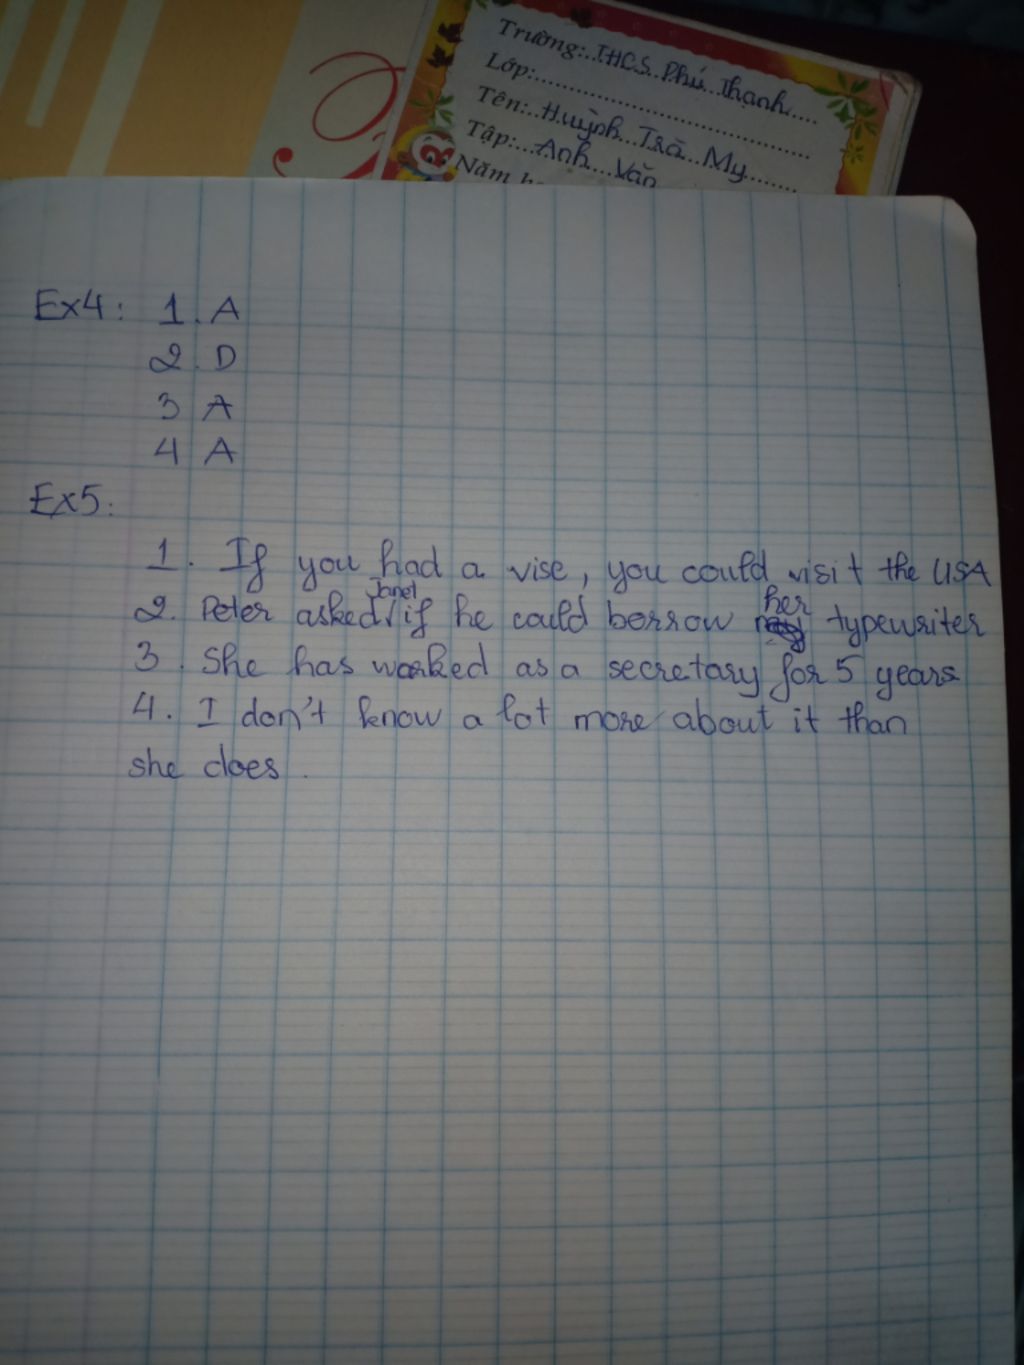 Trường:..THCS..Phú..Thạnh....
Lớp:
Tên:..Huỳnh..Trà..My.......
Tập:...Anh...Văn
Năm h
Ex4: 1. A
2. D
3 A
4 A
Ex5:
1. If you had a vise, you could visit the USA
2. Peter asked Janet if he could borrow her typewriter
3. She has worked as a secretary for 5 years
4. I don't know a lot more about it than
she does.